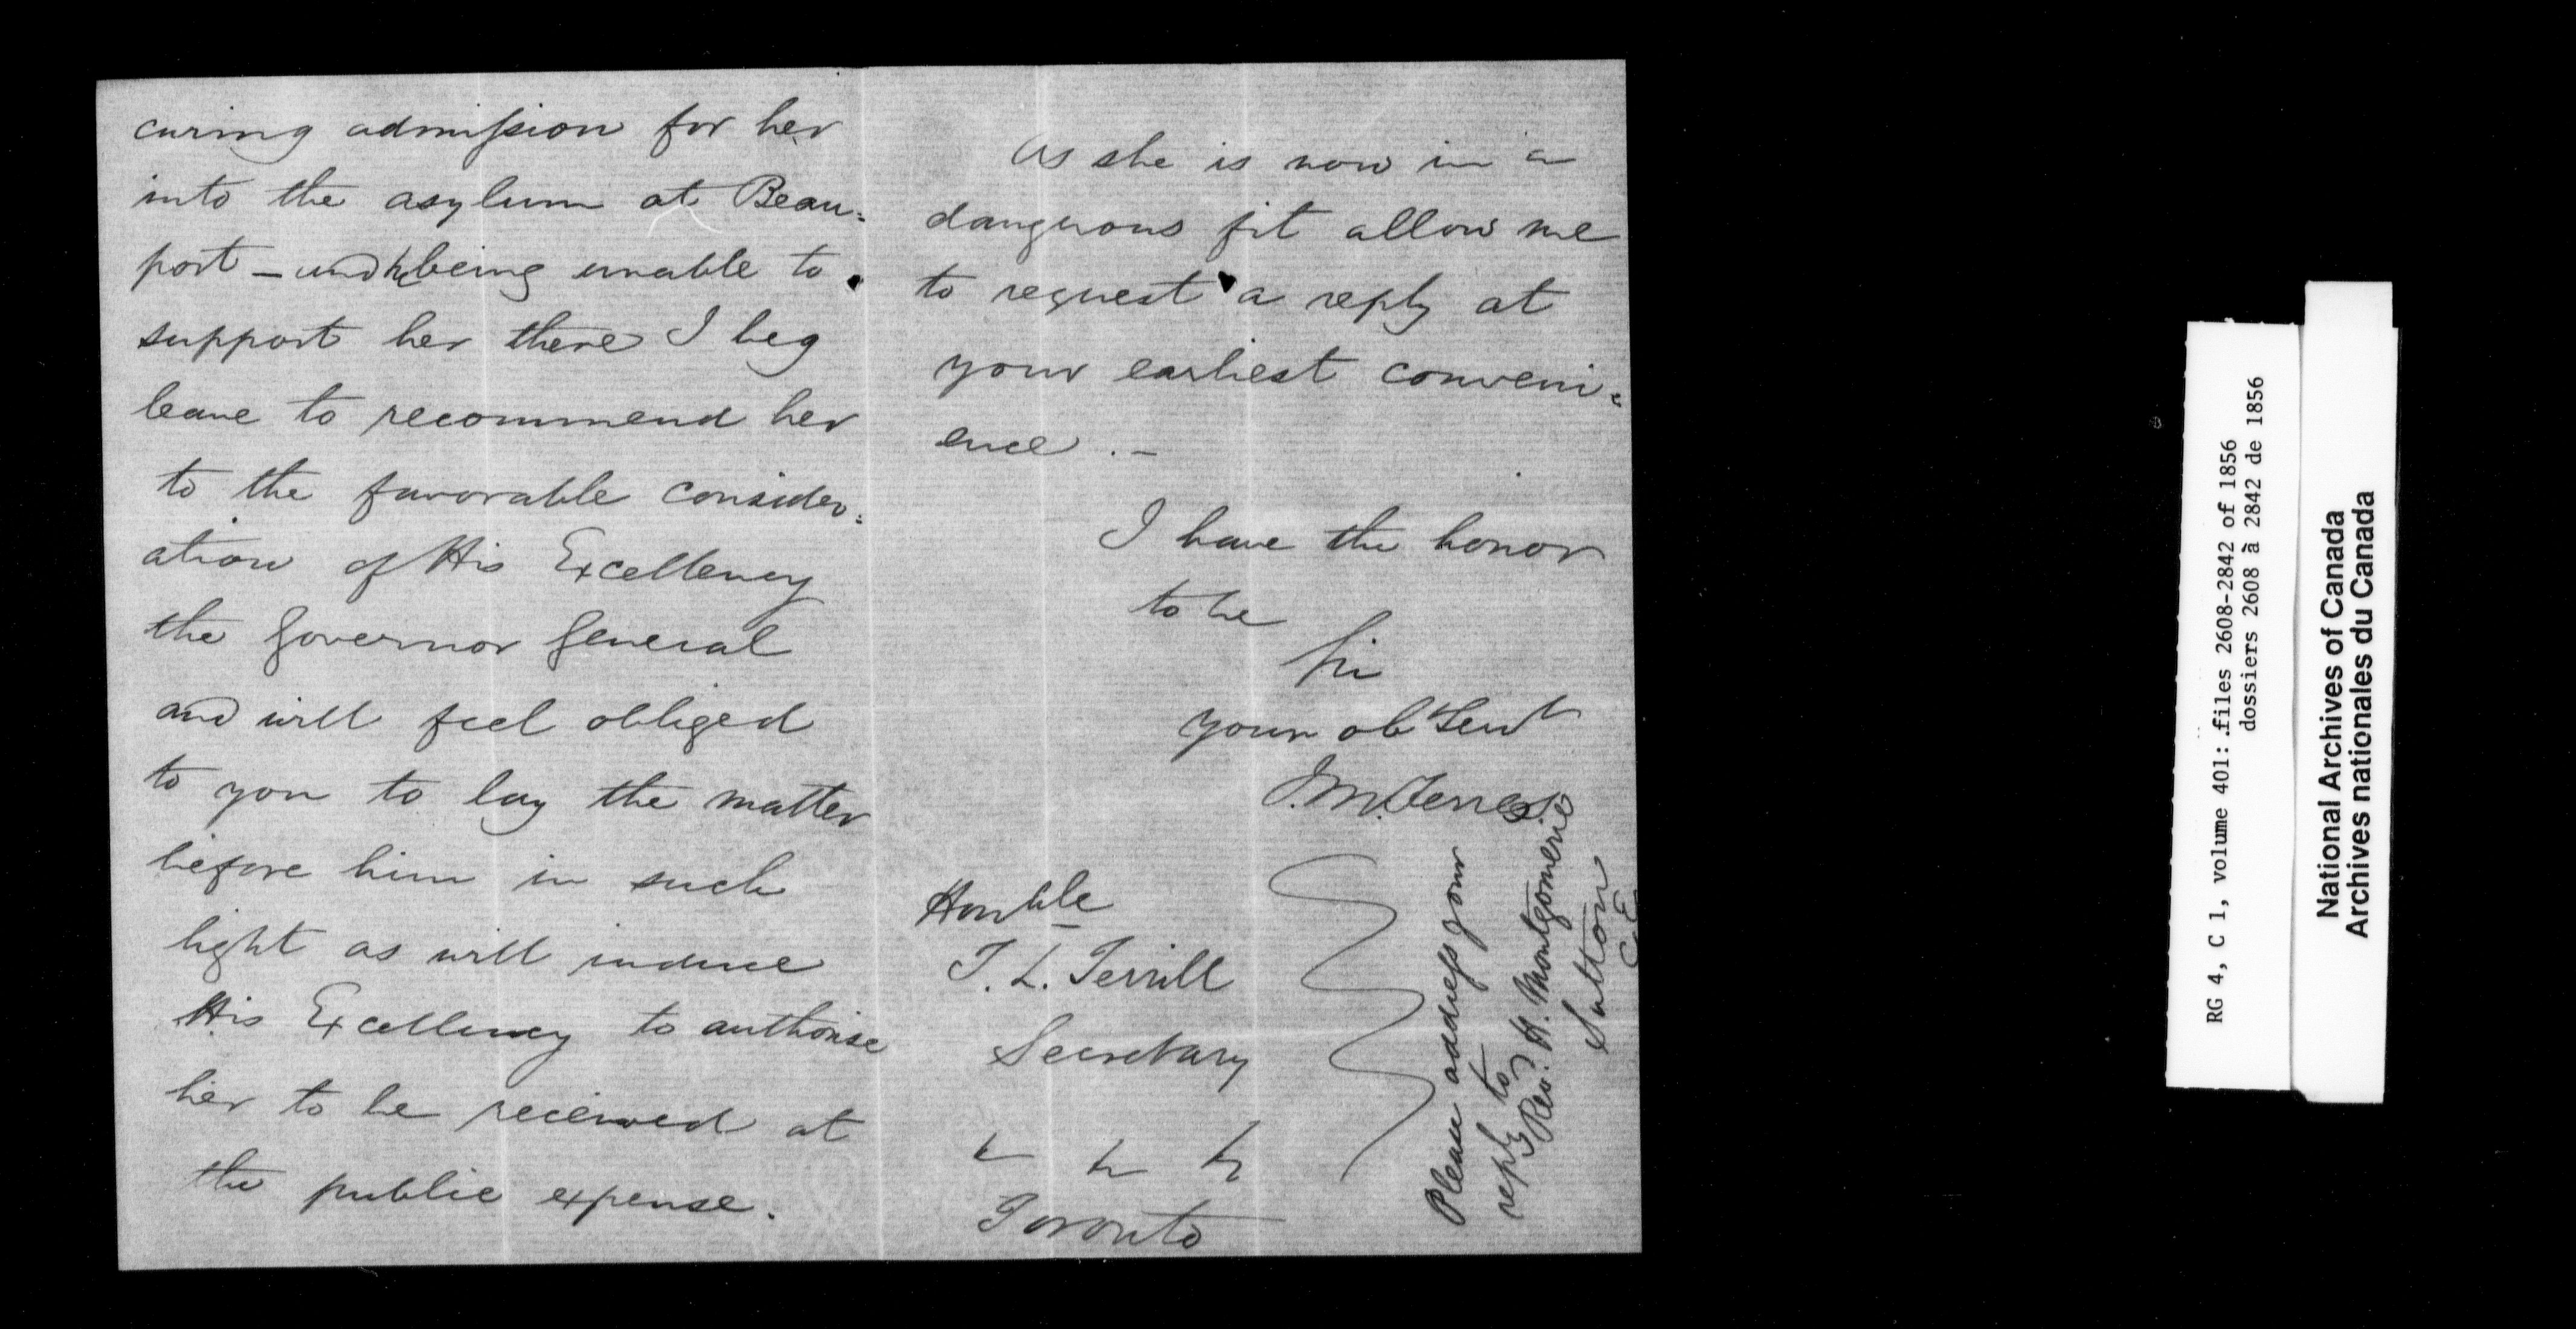 curing admission for her
into the asylum at Beau=
port – and he being unable to
support her there I beg
leave to recommend her
to the favorable consider=
ation of His Excellency
the Governor General
and will feel obliged
to you to lay the matter
before him in such
light as will induce
His Excellency to authorise
her to be received at
the public expense.
As she is now in a
dangerous fit allow me
to request a reply at
your earliest conveni=
ence. –
I have the honor
to be
Sir
your ob Servt
J. M. Ferres
Honble
T. L. Terrill
Secretary
Toronto
Please address your
reply to
Revd H. Montgomerie
Sutton
C. E
RG 4, C 1, volume 401: files 2608-2842 of 1856
dossiers 2608 à 2842 de 1856
National Archives of Canada
Archives nationales du Canada